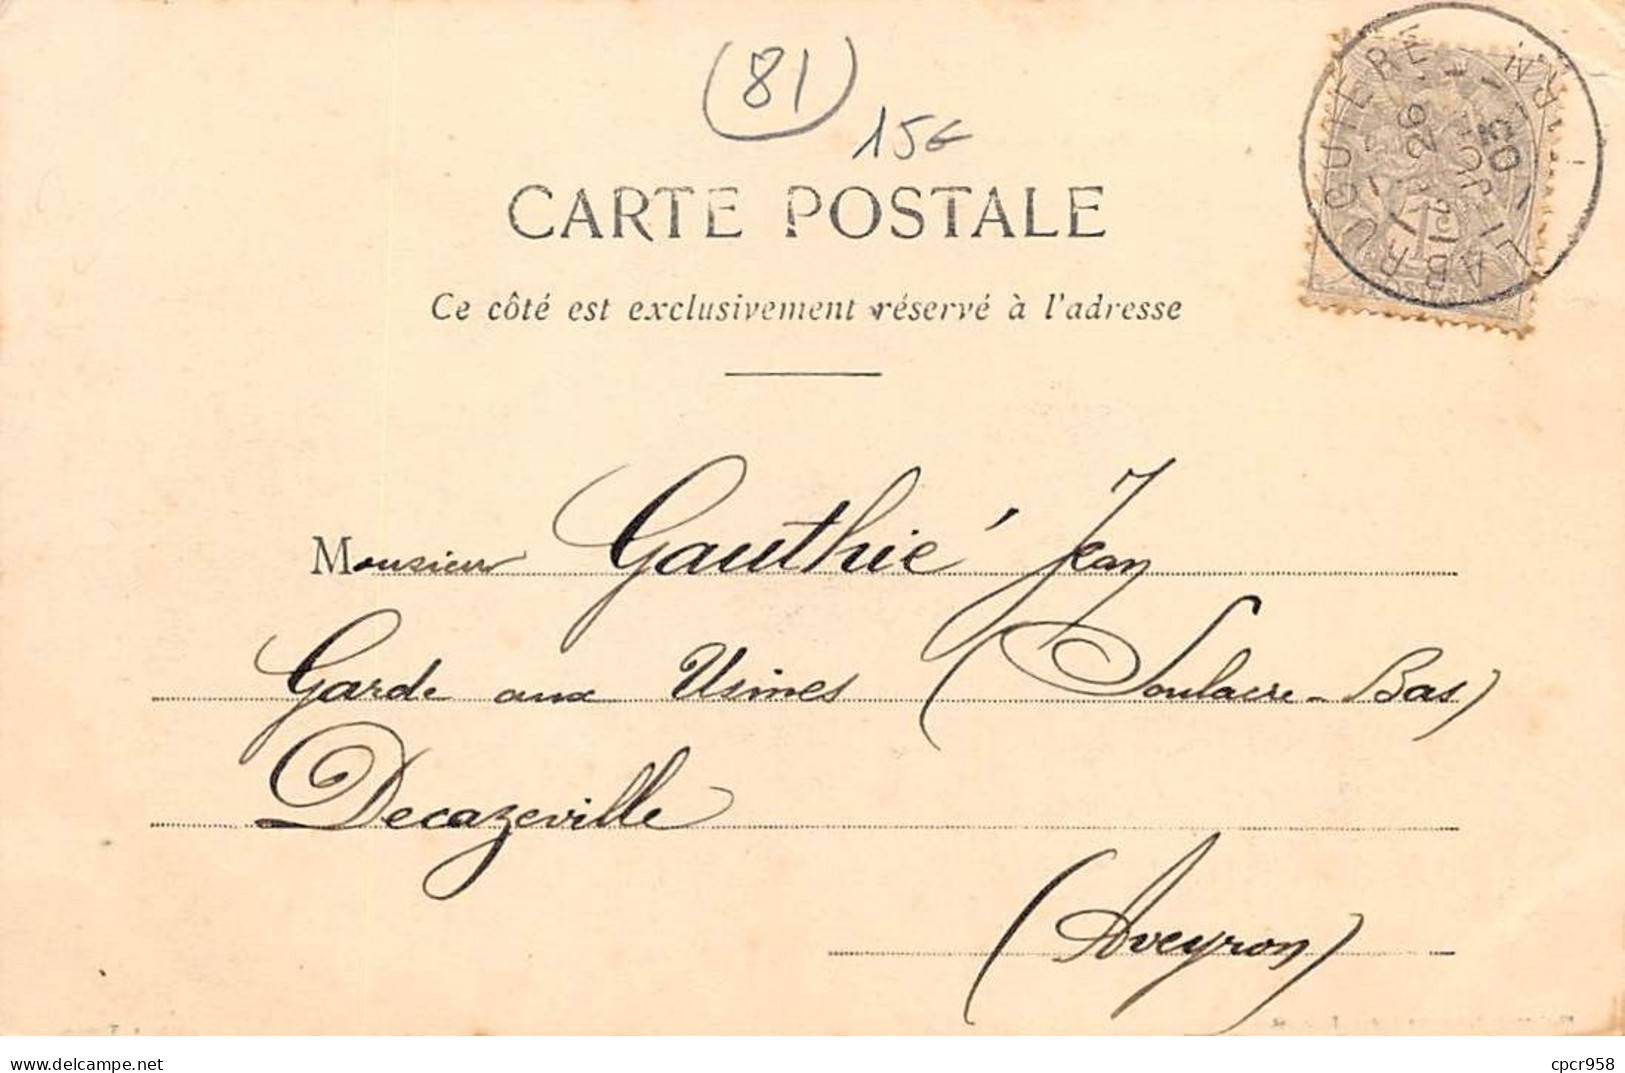 (81)
15€
CARTE POSTALE
Ce côté est exclusivement réservé à l'adresse
LABRUGUIERE
26
JUIL
03
Monsieur Gauthié Jean
Garde aux Usines (Soulacre-Bas)
Decazeville
(Aveyron)
www.delcampe.net
cpcr958